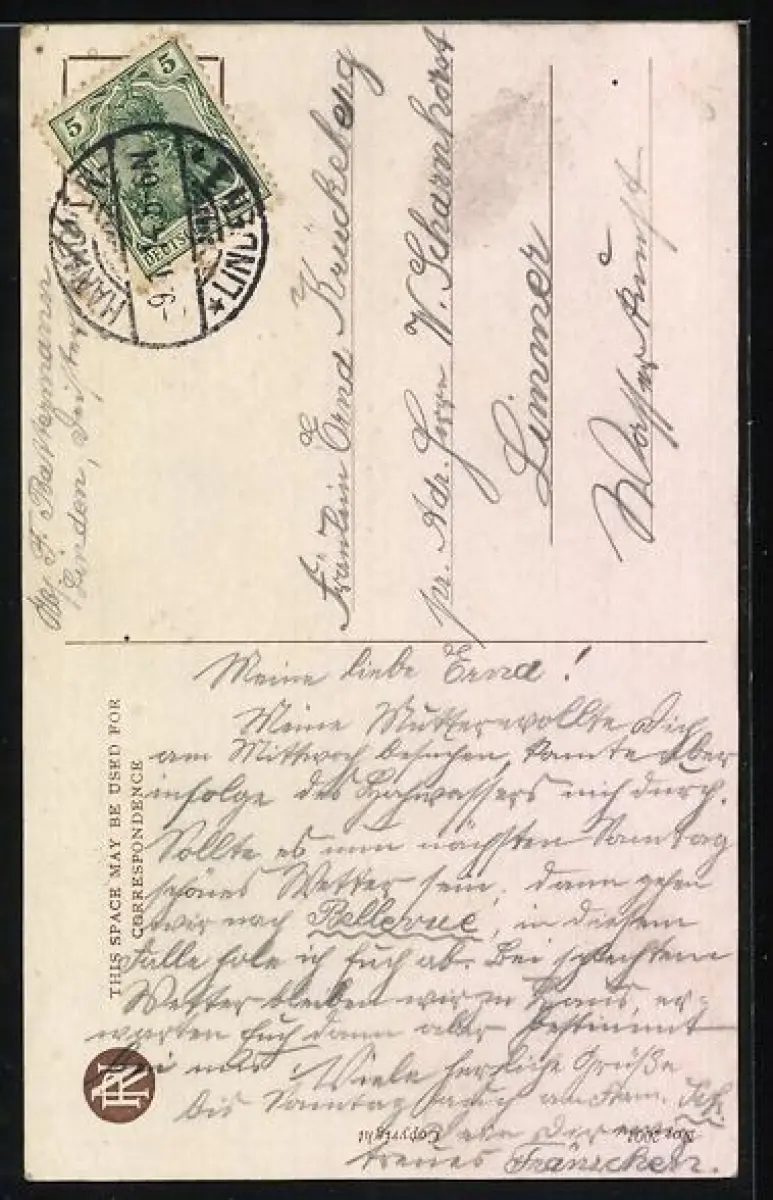 5
5
HANNOVER
* LINDEN *
Abs. F. Battermann
Linden,
Fräulein Erna Krückeberg
pr. Adr. Herrn W. Scharnhorst
Limmer
Wasserkunst
THIS SPACE MAY BE USED FOR
CORRESPONDENCE
Meine liebe Erna!
Meine Mutter wollte Dich
am Mittwoch besuchen, konnte aber
infolge des Hochwassers nich durch.
Sollte es nun nächsten Sonntag
schönes Wetter sein, dann gehen
wir nach Bellevue, in diesem
Falle hole ich Euch ab. Bei schlechtem
Wetter bleiben wir zu Haus, er-
warten Euch dann aber bestimmt
bei uns. Viele herzliche Grüße
bis Sonntag auch an
Dein
treues Fränzchen.
Copyright
Ser 2001